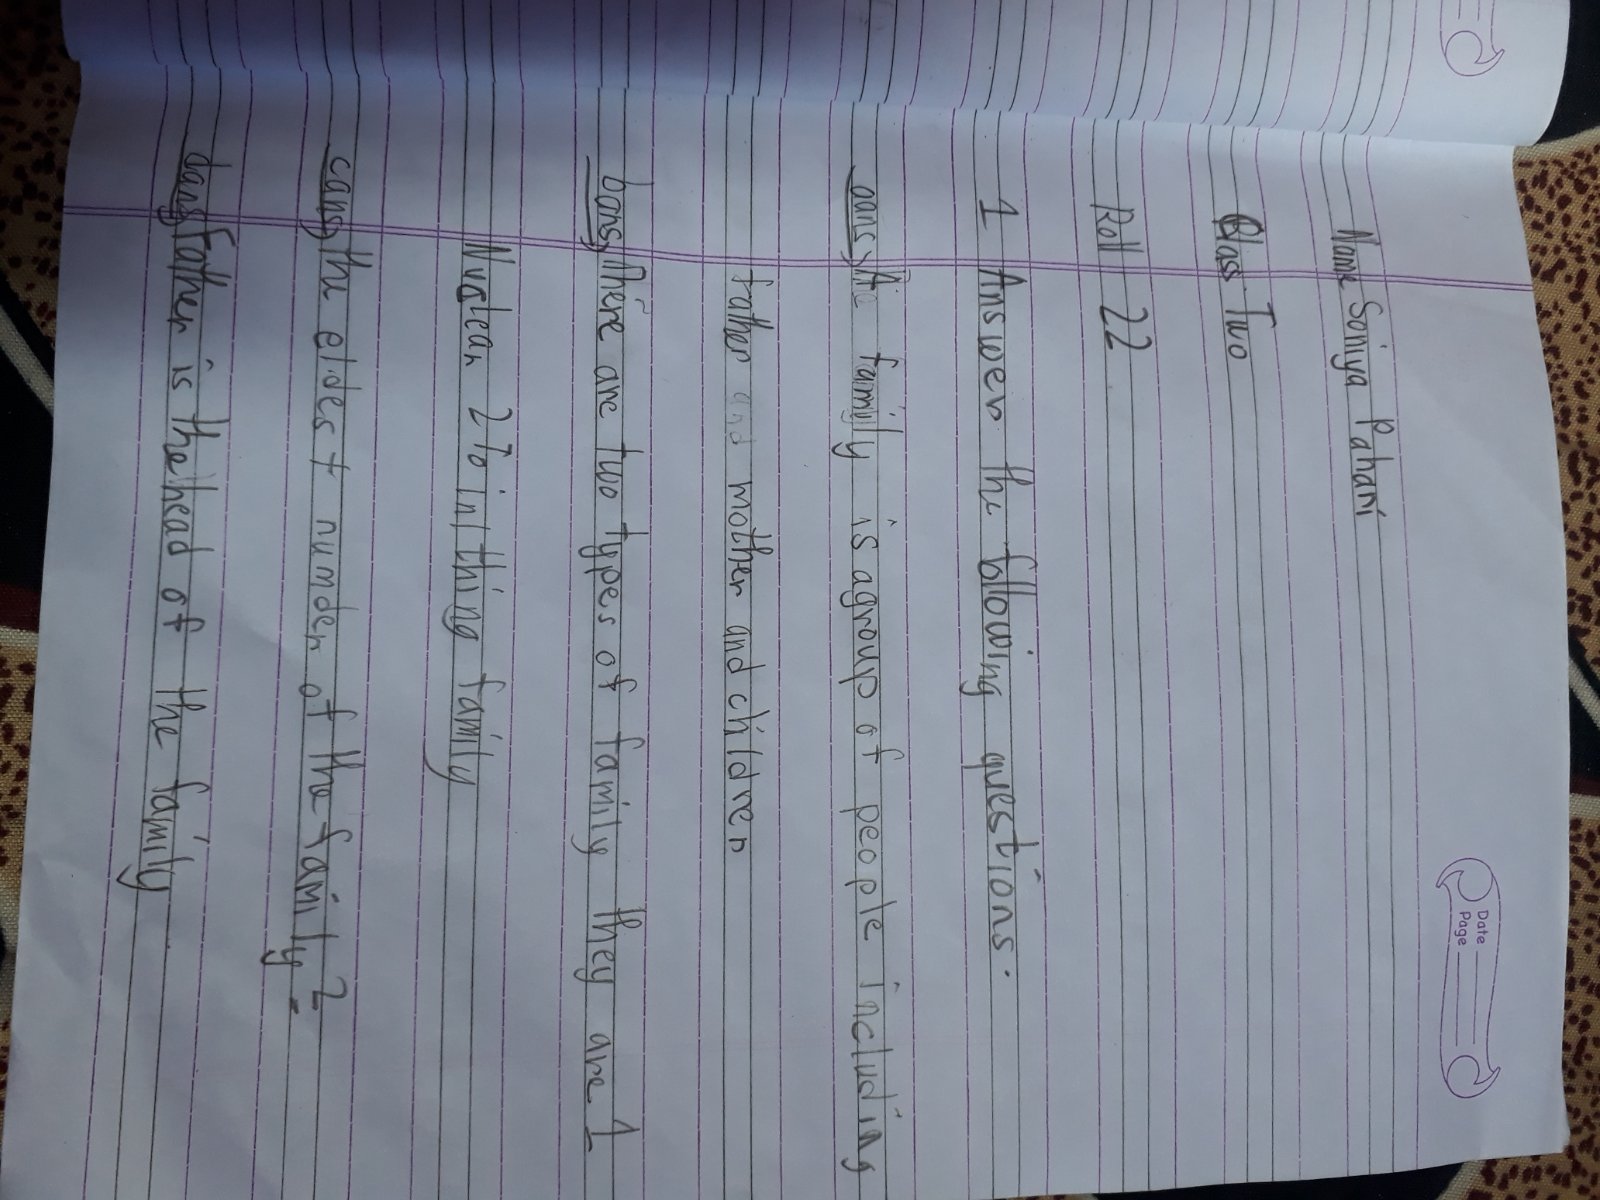 Date
Page
Name Soniya Pahani
Class Two
Roll 22
1 Answer the following questions.
aans, A family is agroup of people including
father and mother and children
bans, There are two types of family they are 1
Nuclear 2 To intthing family
cans, the eldest numder of the family?
dans, Father is the head of the family